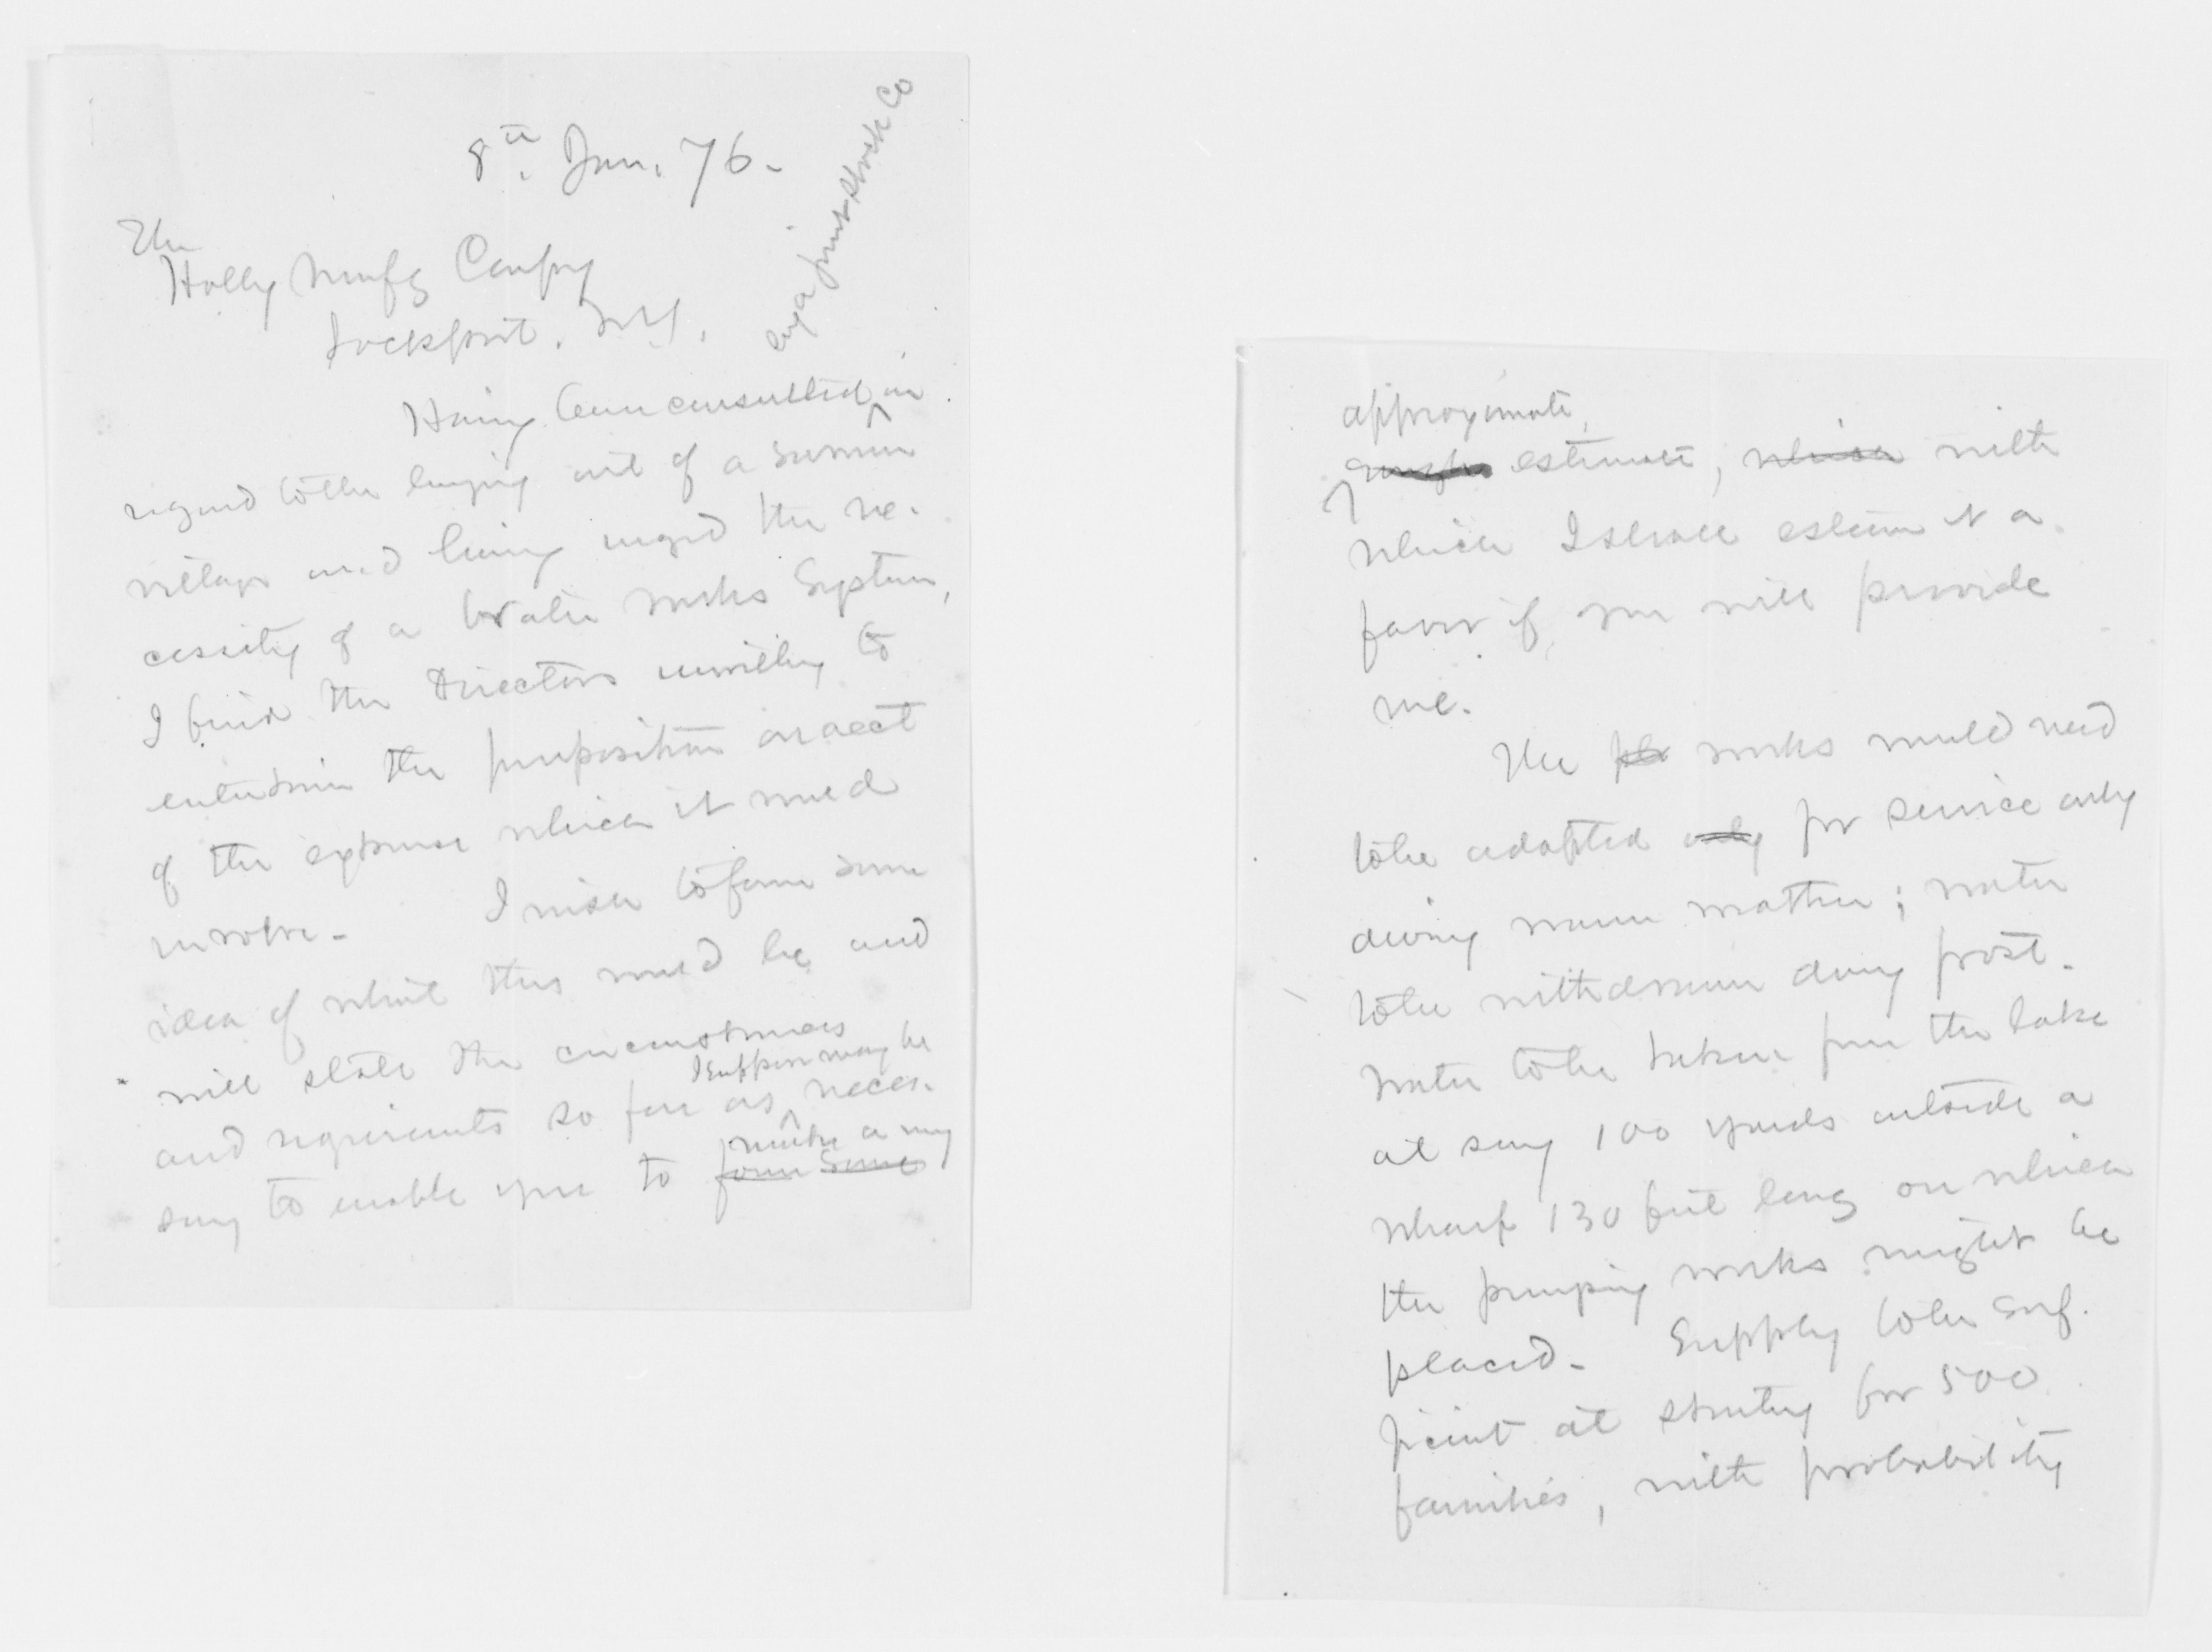 8th. Jan. 76.
The
Holly Manfg Compy
Lockport. N.Y.
by a joint stock Co
Having been consulted in
regard to the laying out of a summer
village and having urged the ne-
cessity of a water works system,
I find the Directors unwilling to
entertain the proposition on acct
of the expense which it would
involve - I wish to form some
idea of what this would be and
will state the circumstances
I suppose may be
and requirements so far as neces-
make a
sary to enable you to form some
approximate
rough estimate, which with
which I shall esteem it a
favor if you will provide
me.
The works would need
to be adapted only for service only
during warm weather; water
to be withdrawn during frost.
Water to be taken from the lake
at say 100 yards outside a
wharf 130 feet long on which
the pumping works might be
placed - Supply to be suf-
ficient at starting for 500
families, with probability